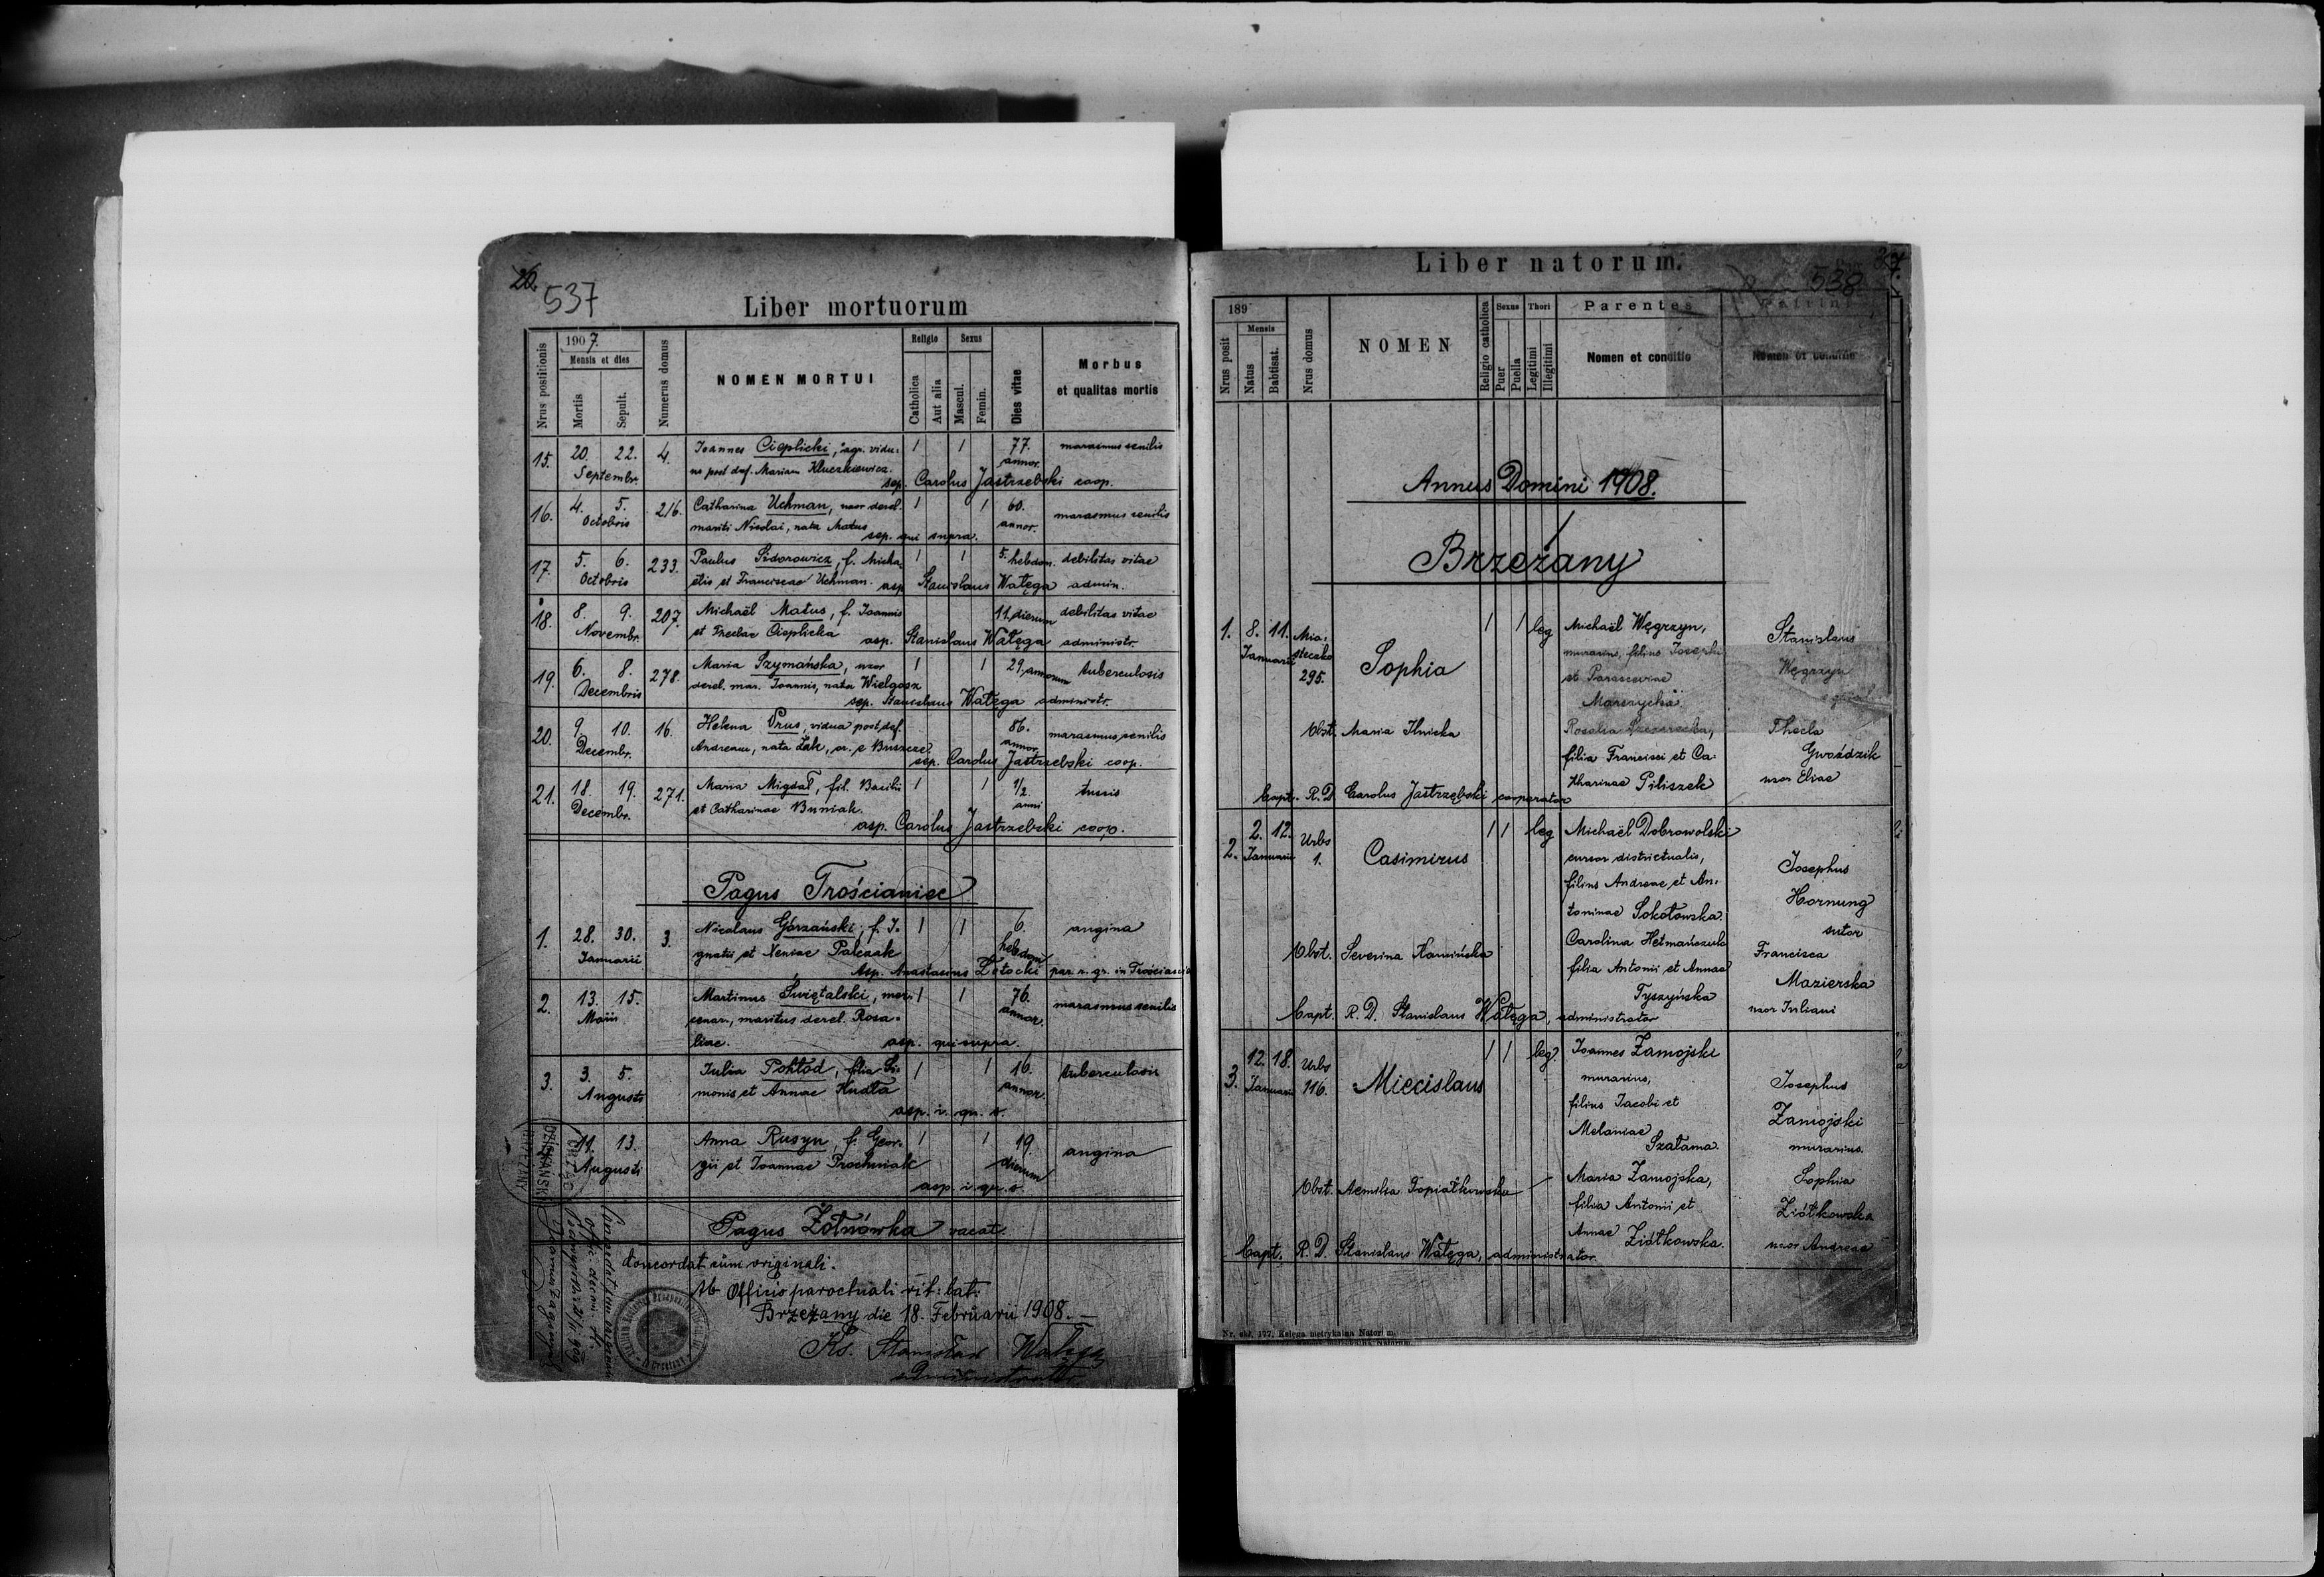 20.
537
Liber mortuorum
Nrus postitionis
1907.
Mensis et dies
Mortis
Sepult.
Numerus domus
NOMEN MORTUI
Religio
Catholica
Aut alia
Sexus
Mascul.
Femin.
Dies vitae
Morbus
et qualitas mortis
15. 20. 22. 4. Ioannes Cieplicki, agr. vidu= 1 1 77. marasmus senilis
Septembr. us post def. Mariam Kluczkiewicz. annor.
sep. Carolus Jastrzebski coop.
16. 4. 5. 216. Catharina Uchman, uxor derel. 1 1 60. marasmus senilis
Octobris mariti Nicolai, nata Matus annor.
sep. qui supra.
17. 5. 6. 233. Paulus Sidorowicz, f. Micha- 1 1 5. hebdom. debilitas vitae
Octobris elis et Franciscae Uchman. asp. Stanislaus Watęga admin.
18. 8. 9. 207. Michaël Matus, f. Ioannis 11 dierum debilitas vitae
Novembr. et Theclae Cieplicka asp. Stanislaus Watęga administr.
19. 6. 8. 278. Maria Szymańska, uxor 1 1 29 annorum tuberculosis
Decembris derel. mar. Ioannis, nata Wielgosz
sep. Stanislaus Watęga administr.
20. 9. 10. 16. Helena Prus, vidua post def. 86. marasmus senilis
Decembr. Andream, nata Żak, or. e Buszcze annor.
sep. Carolus Jastrzebski coop.
21. 18. 19. 271. Maria Migdał, fil. Basilii 1 1 1/2 tussis
Decembr. et Catharinae Buniak. anni
asp. Carolus Jastrzebski coop.
Pagus Trościaniec
1. 28. 30. 3. Nicolaus Górzański, f. I- 1 1 6. angina
Ianuarii gnatii et Xeniae Palczak hebdom
Asp. Anastasius Złotocki par. r. gr. in Trościaniec
2. 13. 15. Martinus Świętalski, mer- 1 1 76. marasmus senilis
Maii cenar., maritus derel. Rosa- annor.
liae. asp. qui supra.
3. 3. 5. Iulia Pohłód, filia Si- 1 1 16. tuberculosis
Augusti monis et Annae Hudła annor.
asp. i. gr. s.
11. 13. Anna Rusyn, f. Geor- 1 1 19. angina
Augusti gii et Ioannae Prochniak dierum
asp. i. gr. s.
Pagus Żołnówka vacat.
Concordat cum originali.
Ab Officio parochuali rit: lat:
Brzeżany die 18. Februarii 1908. —
Ks. Stanisław Watęga
administrator
Liber natorum.
538
37.
189
Nrus posit
Mensis
Natus
Babtisat.
Nrus domus
NOMEN
Religio catholica
Sexus
Puer
Puella
Thori
Legitimi
Illegitimi
Parentes
Nomen et conditio
Patrini
Nomen et conditio
Annus Domini 1908.
Brzeżany
1. 8. 11. Mia- 1 1 leg Michaël Węgrzyn, Stanislaus
Ianuarii steczko Sophia murarius, filius Iosephi Węgrzyn
295. et Parasceviae
Marszycka.
Obst. Maria Ilnicka Rosalia Szczurecka, Thecla
filia Francisci et Ca- Gwoździk
tharinae Piliszek uxor Eliae
bapt. R. D. Carolus Jastrzębski cooperator
2. 2. 12. Urbs Casimirus 1 1 leg Michaël Dobrowolski
Ianuarii 1. cursor districtualis, Iosephus
filius Andreae et An- Hornung
toninae Sokołowska. sutor
Obst. Severina Kamińska Carolina Hetmańczuk Francisca
filia Antonii et Annae Mazierska
Tyszyńska uxor Iuliani
bapt. R. D. Stanislaus Watęga, administrator
3. 12. 18. Urbs Miecislaus 1 1 leg. Ioannes Zamojski
Ianuarii 116. murarius, Iosephus
filius Iacobi et Zamojski
Melaniae murarius.
Szałama.
Obst. Aemilia Popiatkowska Maria Zamojska, Sophia
filia Antonii et Ziółkowska
Annae Ziółkowska. uxor Andreae
bapt. R. D. Stanislaus Watęga, administrator.
Nr. skł. 177. Księga metrykalna Natorum.